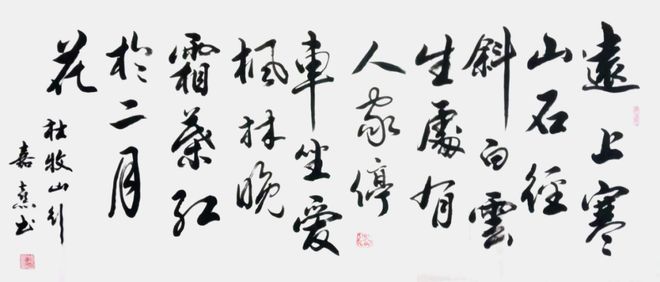 遠上寒
山石徑
斜白雲
生處有
人家停
車坐愛
楓林晚
霜葉紅
於二月
花
杜牧山行
嘉 书